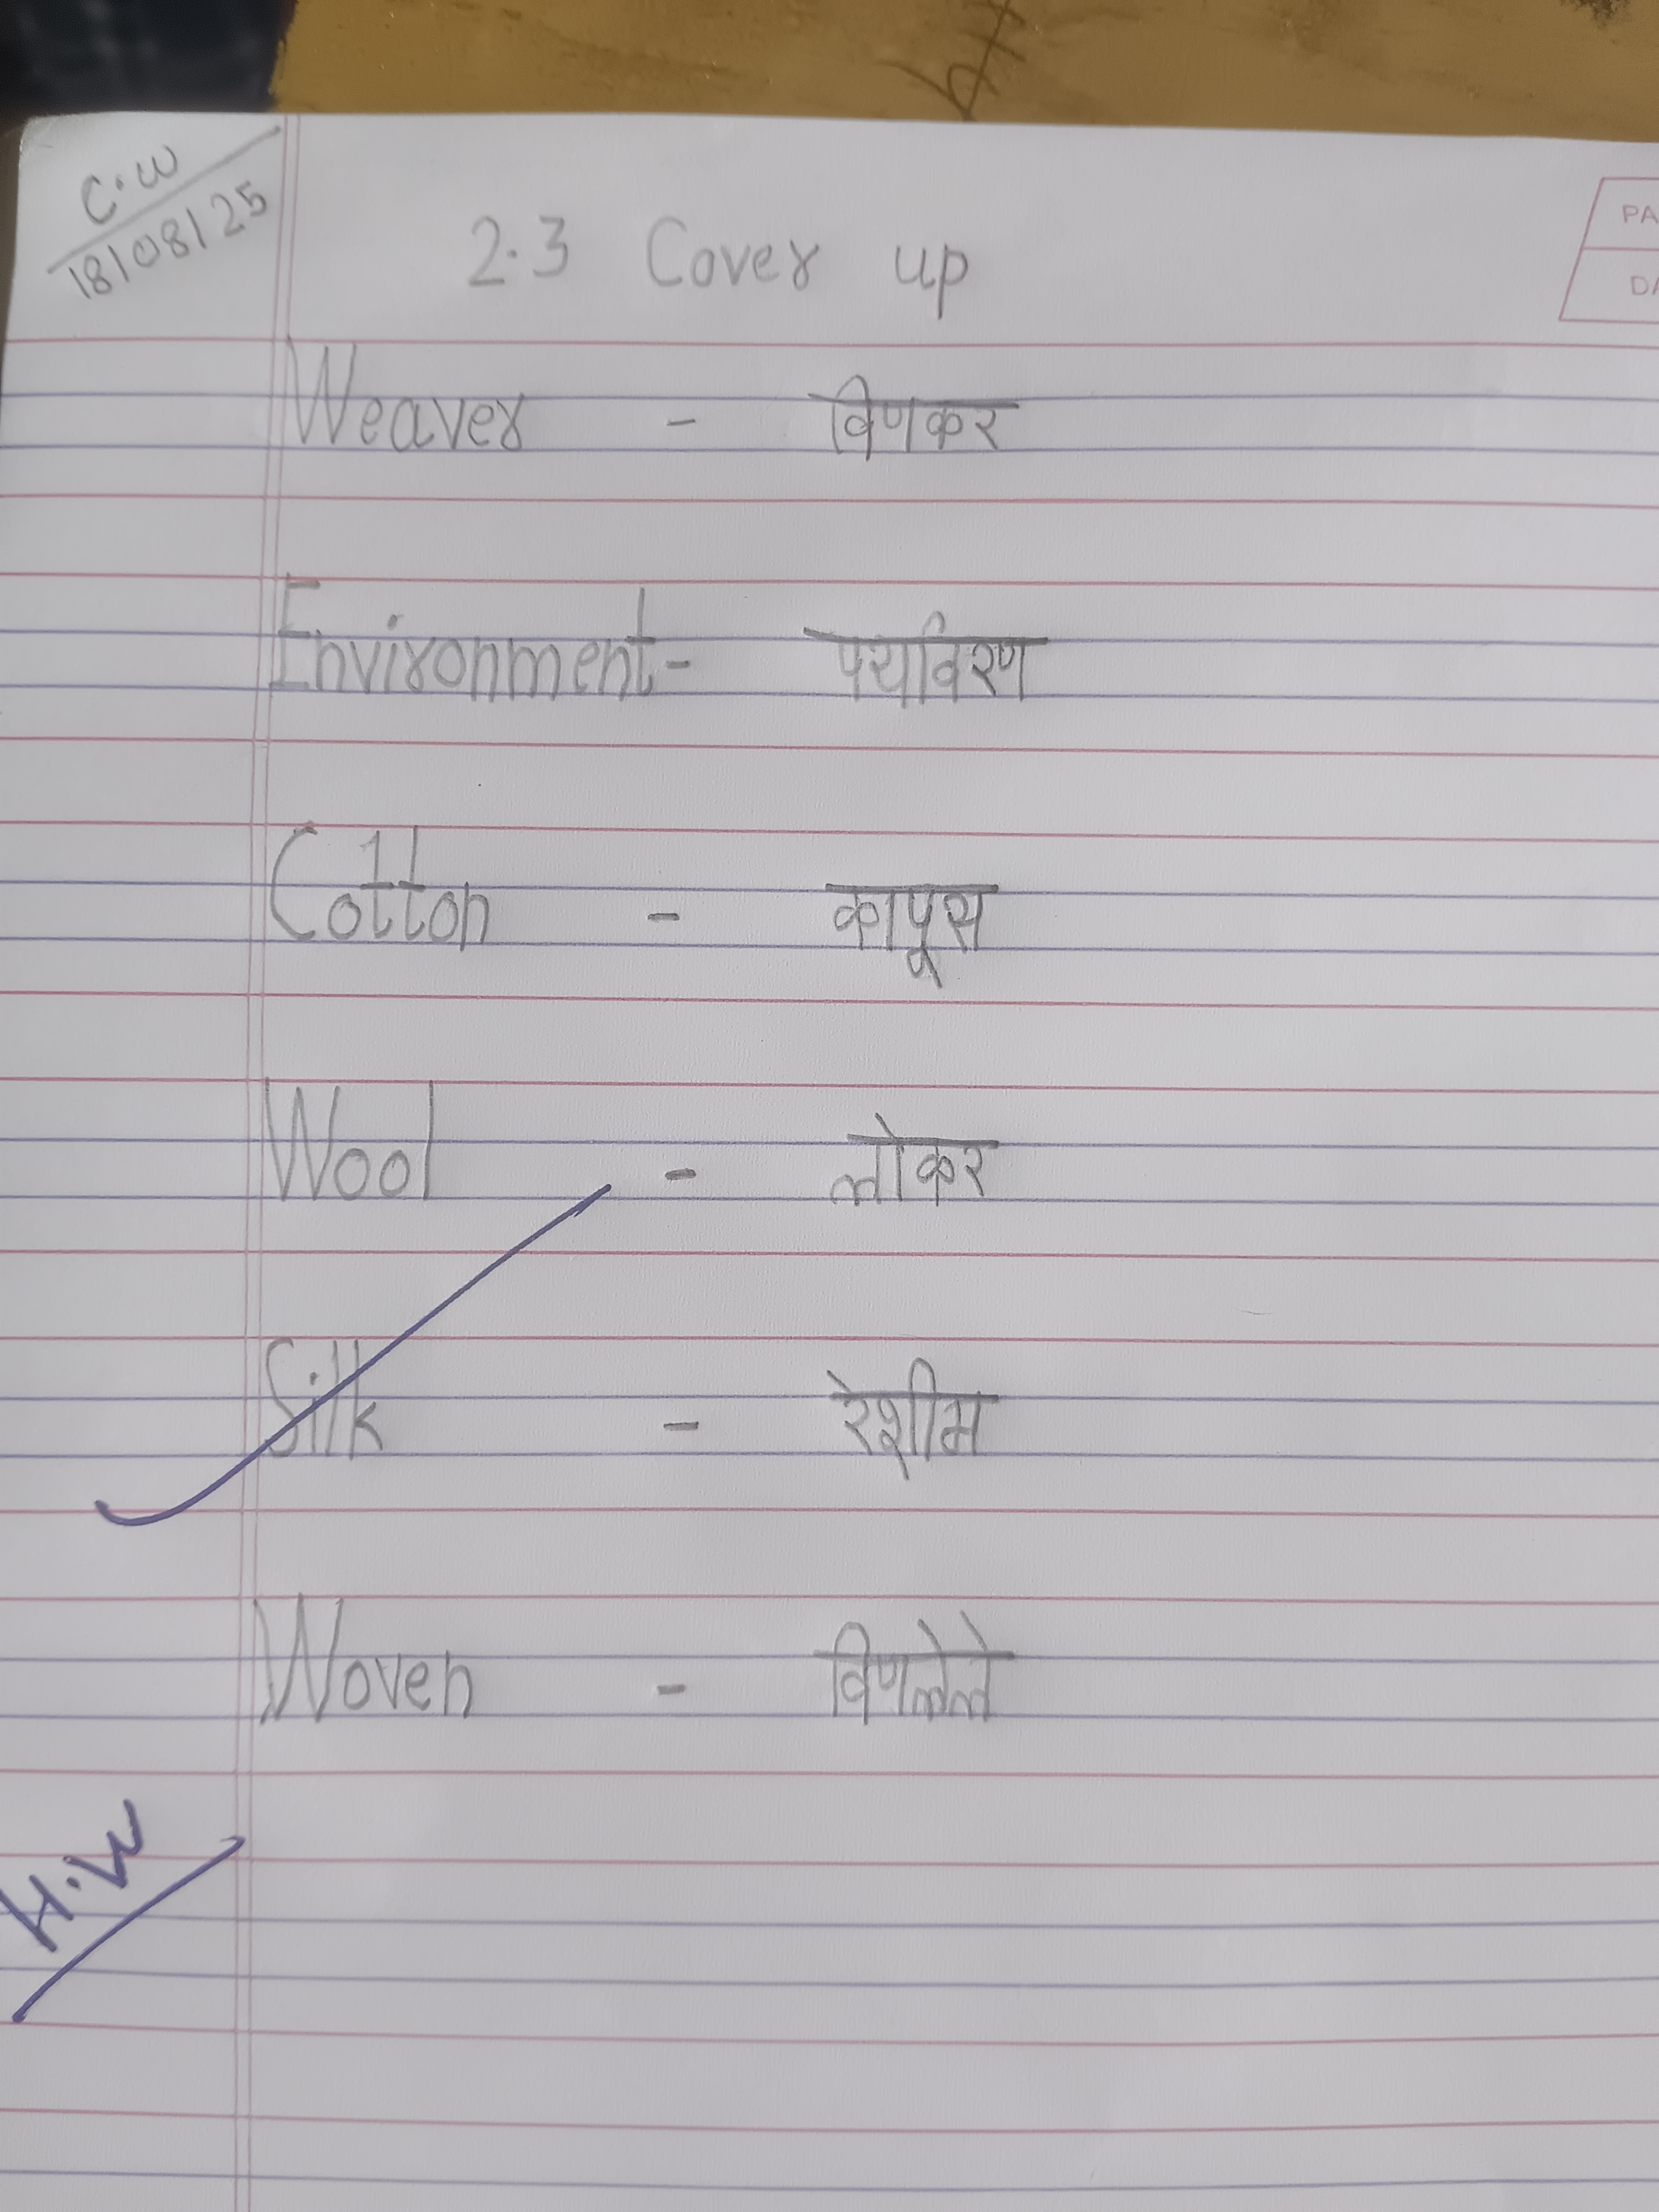 C.W
18/08/25
2.3 Cover up
Weaver - विणकर
Environment - पर्यावरण
Cotton - कापूस
Wool - लोकर
Silk - रेशीम
Woven - विणलेले
H.W